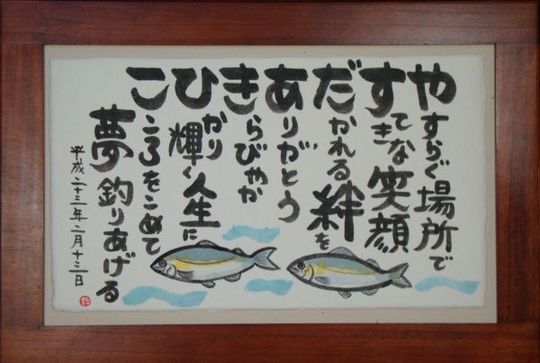 やすらぐ場所で
すてきな笑顔
だかれる絆を
ありがとう
きらびやか
ひかり輝く人生に
こころをこめて
夢釣りあげる
平成二十三年二月十三日